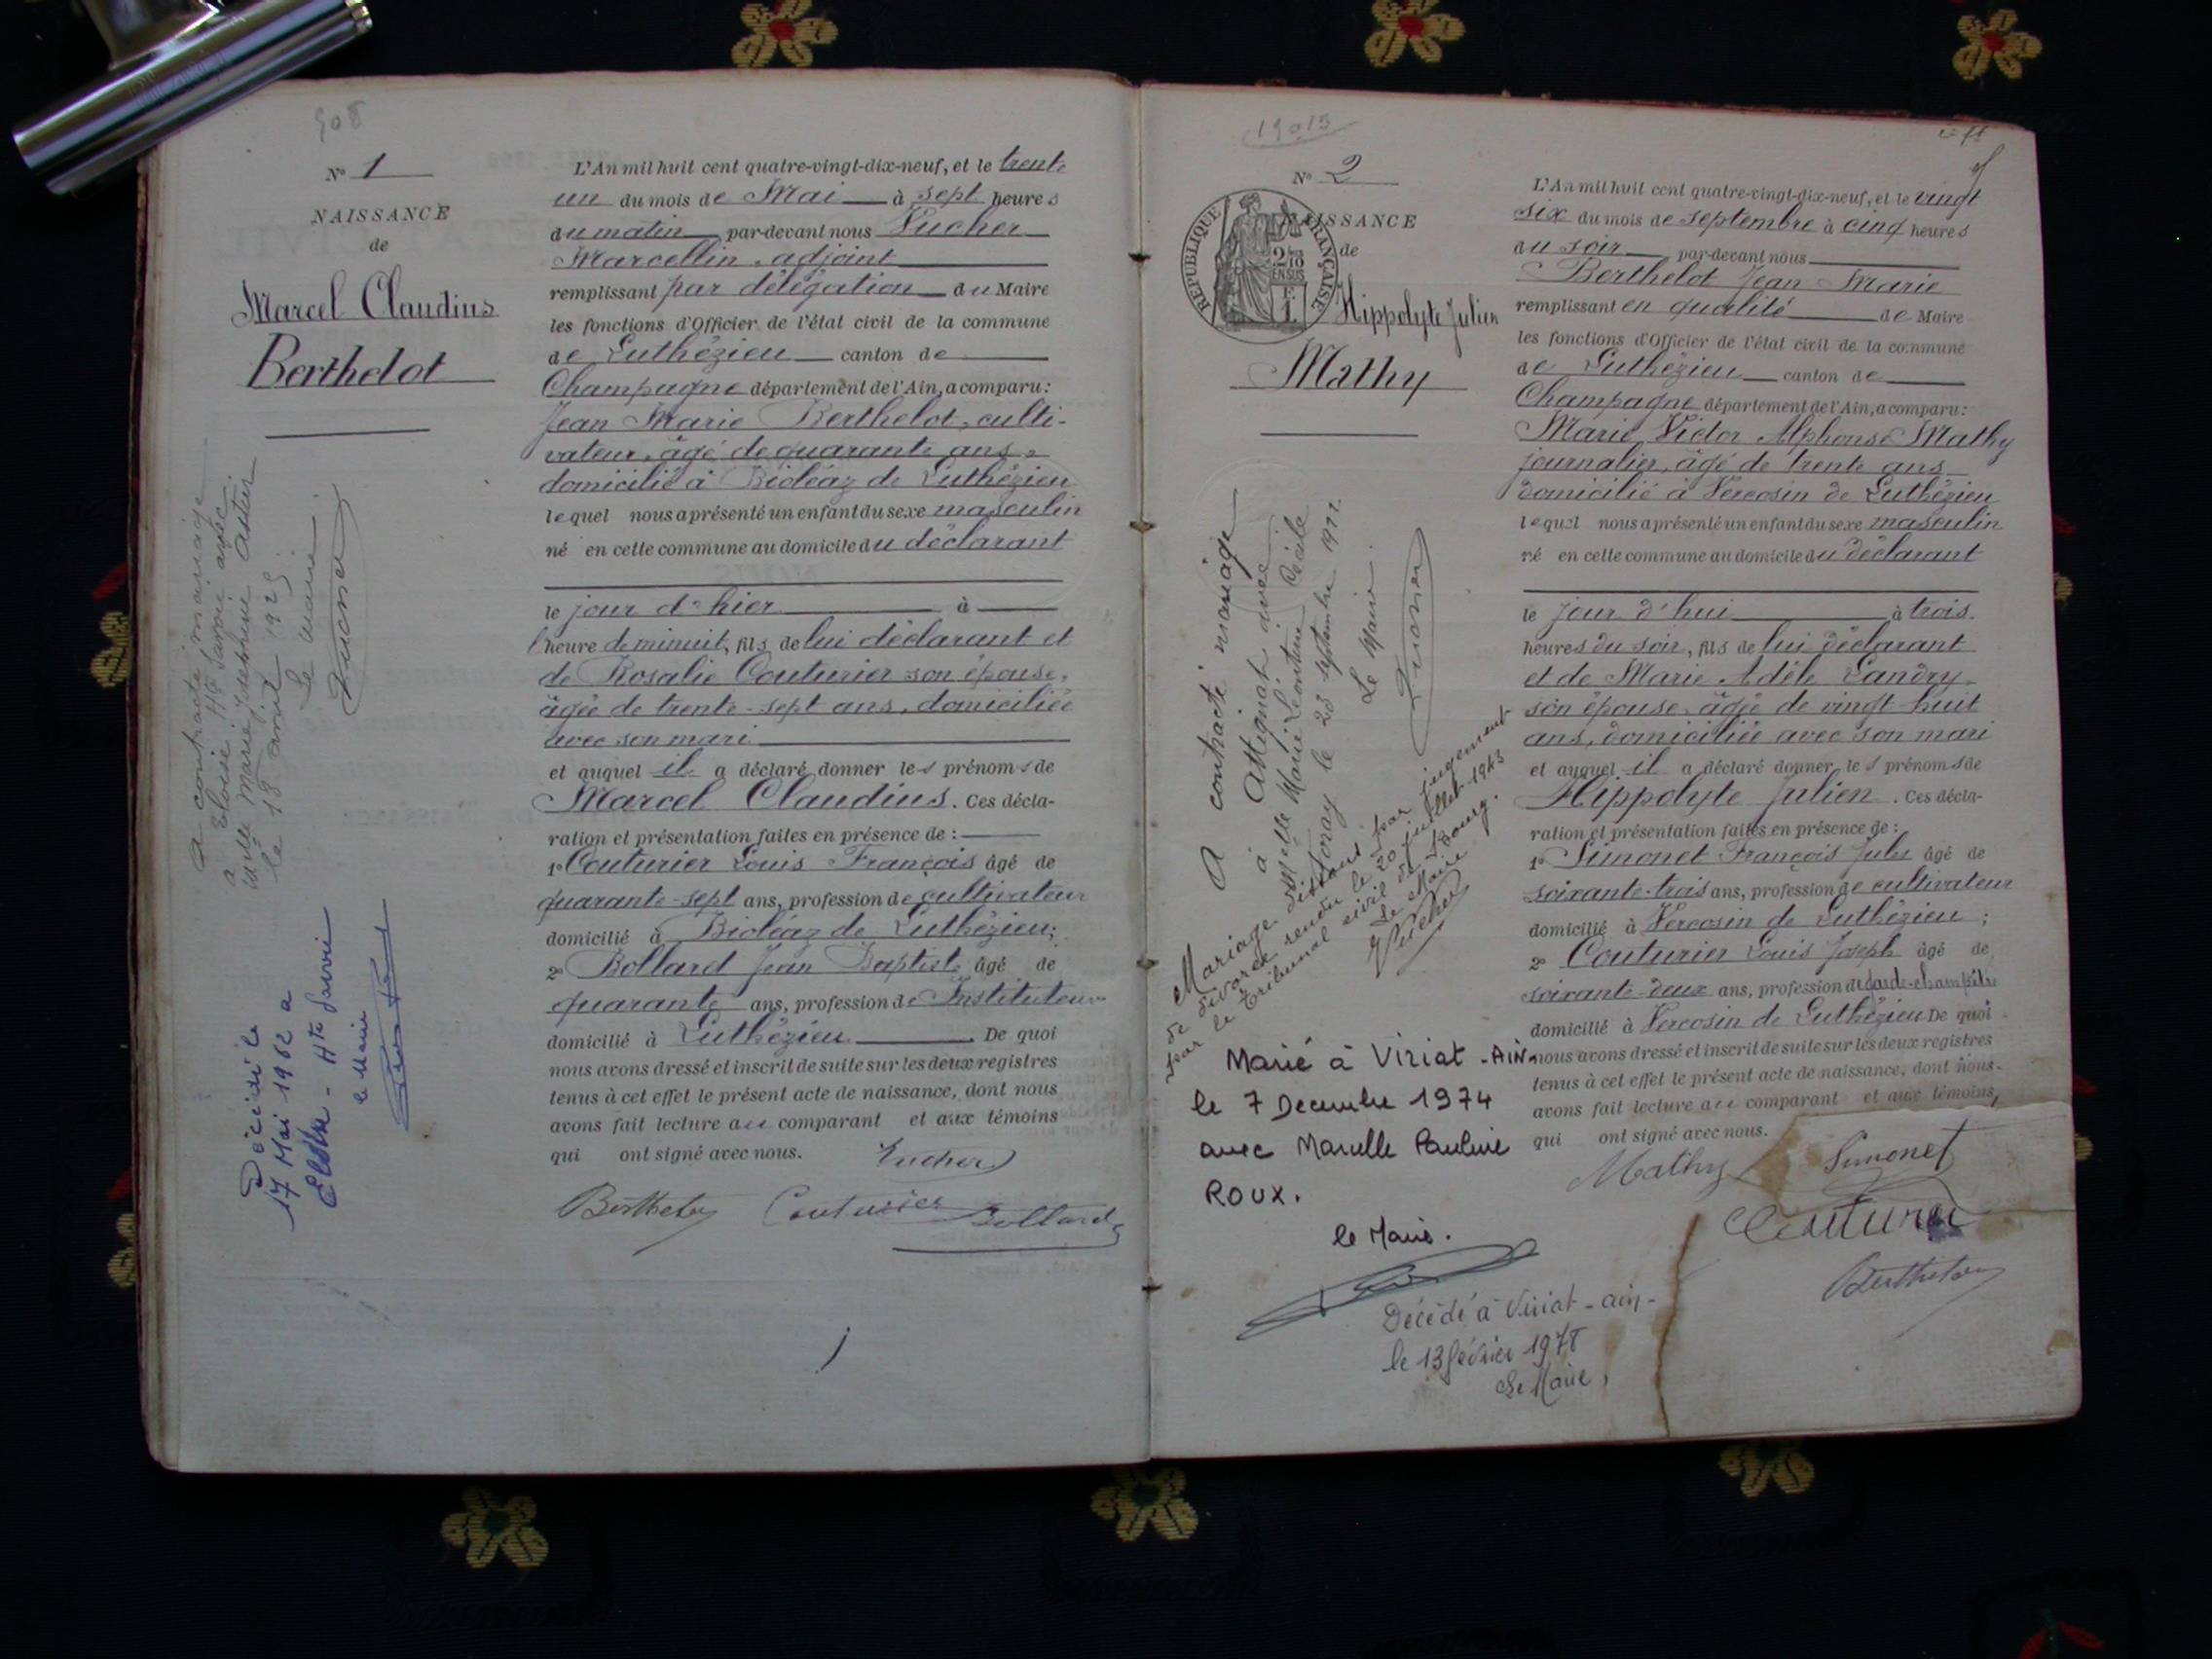 908
No 1
NAISSANCE
de
Marcel Claudius
Berthelot
A contracté mariage
à Eloise Hte Savoie avec
Marie Joséphine Astier
le 18 avril 1925
Le maire
Décédé le
17 Mai 1962 a
Hte Savoie
le Maire
L'An mil huit cent quatre-vingt-dix-neuf, et le trente
un du mois de Mai à sept heures
du matin par-devant nous Lucher
Marcellin, adjoint
remplissant par délégation du Maire
les fonctions d'Officier de l'état civil de la commune
de Luthézieu canton de
Champagne département de l'Ain, a comparu:
Jean Marie Berthelot, culti-
vateur, âgé de quarante ans,
domicilié à Bioléaz de Luthézieu
lequel nous a présenté un enfant du sexe masculin
né en cette commune au domicile du déclarant
le jour d'hier à
l'heure de minuit, fils de lui déclarant et
de Rosalie Couturier son épouse,
âgée de trente-sept ans, domiciliée
avec son mari
et auquel il a déclaré donner les prénoms de
Marcel Claudius. Ces décla-
ration et présentation faites en présence de:
1o Couturier Louis François âgé de
quarante-sept ans, profession de cultivateur
domicilié à Bioléaz de Luthézieu;
2o Bollard Jean Baptiste âgé de
quarante ans, profession de Instituteur
domicilié à Luthézieu. De quoi
nous avons dressé et inscrit de suite sur les deux registres
tenus à cet effet le présent acte de naissance, dont nous
avons fait lecture au comparant et aux témoins
qui ont signé avec nous. Lucher
Berthelot Couturier Bollard
19015
No 2
NAISSANCE
de
RÉPUBLIQUE FRANÇAISE
2/10
EN SUS
Hippolyte Julien
Mathy
A contracté mariage
à Attignat avec
Melle Marie Léontine Cécile
Foray le 23 septembre 1922.
Le Maire.
Mariage dissous par jugement
de divorce rendu le 20 juillet 1943
par le tribunal civil de Bourg.
Le Maire
Marié à Viriat -Ain-
le 7 Decembre 1974
avec Marcelle Pauline
ROUX.
le Maire.
Décédé à Viriat - ain -
le 13 février 1978
Le Maire,
L'An mil huit cent quatre-vingt-dix-neuf, et le vingt
six du mois de septembre à cinq heures
du soir par-devant nous
Berthelot Jean Marie
remplissant en qualité de Maire
les fonctions d'Officier de l'état civil de la commune
de Luthézieu canton de
Champagne département de l'Ain, a comparu:
Marie Victor Alphonse Mathy
journalier, âgé de trente ans
domicilié à Vercosin de Luthézieu
lequel nous a présenté un enfant du sexe masculin
né en cette commune au domicile du déclarant
le jour d'hui à trois
heures du soir, fils de lui déclarant
et de Marie Adèle Landry
son épouse, âgée de vingt huit
ans, domiciliée avec son mari
et auquel il a déclaré donner les prénoms de
Hippolyte Julien. Ces décla-
ration et présentation faites en présence de:
1o Simonet François Jules âgé de
soixante-trois ans, profession de cultivateur
domicilié à Vercosin de Luthézieu;
2o Couturier Louis Joseph âgé de
soixante-deux ans, profession de garde-champêtre
domicilié à Vercosin de Luthézieu De quoi
nous avons dressé et inscrit de suite sur les deux registres
tenus à cet effet le présent acte de naissance, dont nous
avons fait lecture au comparant et aux témoins,
qui ont signé avec nous.
Mathy Simonet
Couturier
Berthelot